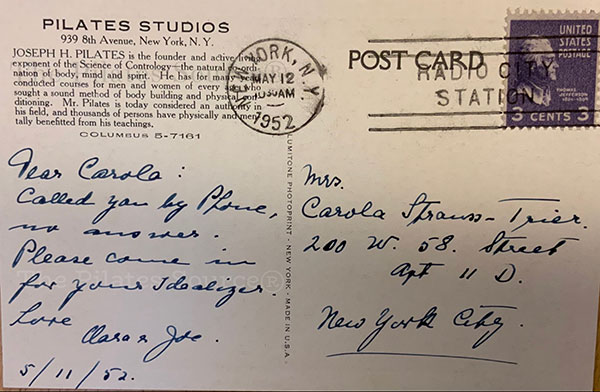 PILATES STUDIOS
939 8th Avenue, New York, N. Y.
JOSEPH H. PILATES is the founder and active living
exponent of the Science of Contrology—the natural co-ordi-
nation of body, mind and spirit. He has for many years
conducted courses for men and women of every age who
sought a sound method of body building and physical con-
ditioning. Mr. Pilates is today considered an authority in
his field, and thousands of persons have physically and men-
tally benefitted from his teachings.
COLUMBUS 5-7161
Dear Carola:
Called you by Phone,
no answer.
Please come in
for your Idealizer.
Love
Clara & Joe.
5/11/52.
The Pilates Source®
LUMITONE PHOTOPRINT - NEW YORK - MADE IN U.S.A.
NEW YORK, N.Y.
MAY 12
1952
POST CARD
RADIO CITY
STATION
UNITED
STATES
POSTAGE
THOMAS
JEFFERSON
3 CENTS 3
Mrs.
Carola Strauss-Trier.
200 W. 58. Street
Apt 11 D.
New York City.